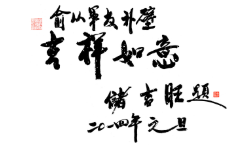 俞从军友补壁
吉祥如意
储吉旺题
二〇一四年元旦